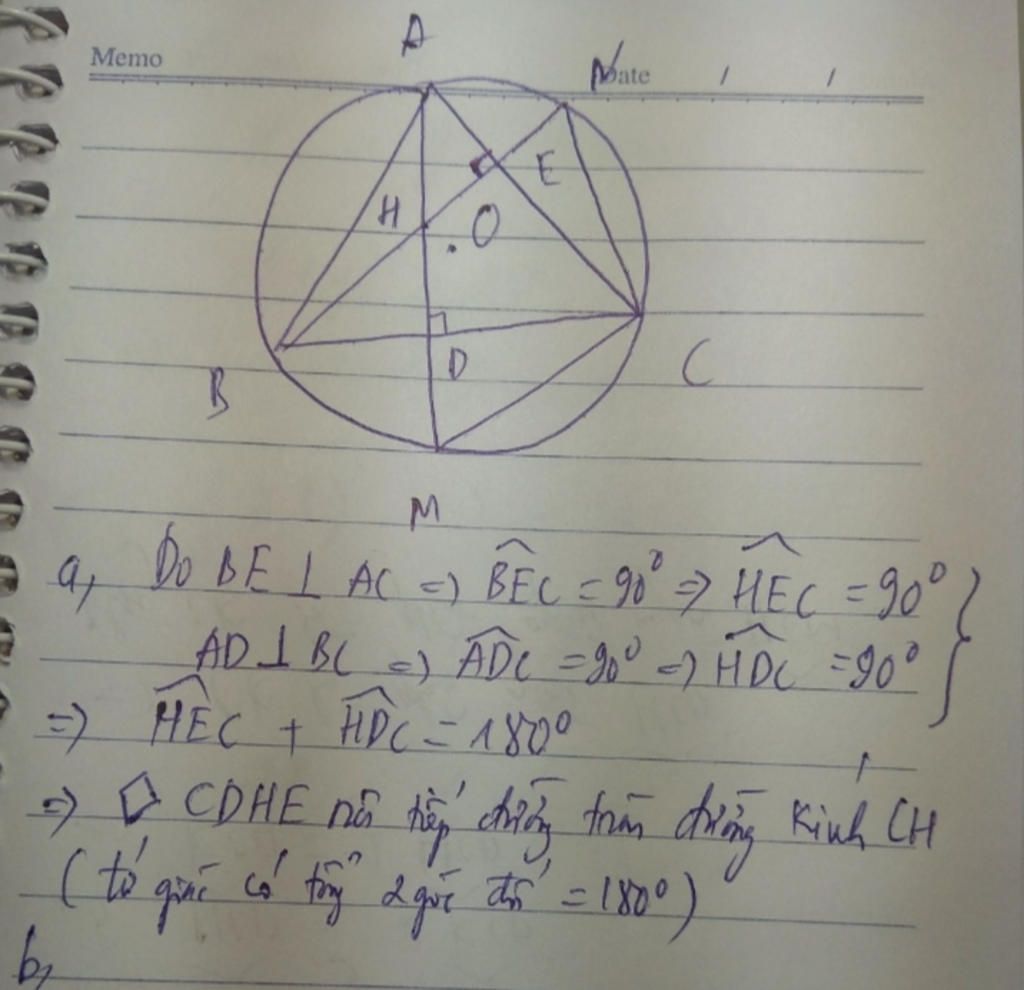 Memo
Date / /
A
N
H
E
O
B
D
C
M
a, Do BE ⊥ AC => \widehat{BEC} = 90⁰ => \widehat{HEC} = 90⁰
AD ⊥ BC => \widehat{ADC} = 90⁰ => \widehat{HDC} = 90⁰
=> \widehat{HEC} + \widehat{HDC} = 180⁰
=> ◇ CDHE nội tiếp đường tròn đường kính CH
(tứ giác có tổng 2 góc đối = 180⁰)
b,